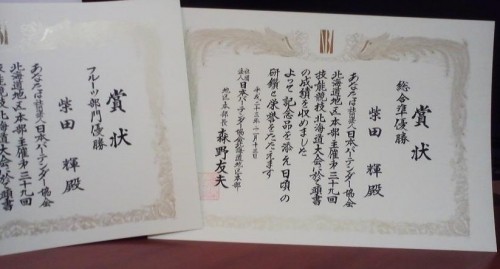 賞状
フルーツ部門優勝
柴田 輝 殿
あなたは社団法人日本バーテンダー協会
北海道地区本部主催第三十九回
技能競技北海道大会に於て頭書
賞状
総合準優勝
柴田 輝 殿
あなたは社団法人日本バーテンダー協会
北海道地区本部主催第三十九回
技能競技北海道大会に於て頭書
の成績を収めました
よって記念品を添え日頃の
研鑽と栄誉をたたえます
社団法人日本バーテンダー協会北海道地区本部
地区本部長 森野友夫